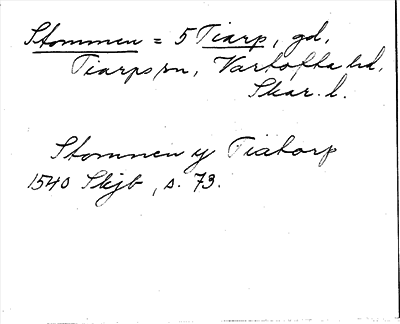 Stommen = 5 Tiarp, gd,
Tiarps sn, Vartofta hd,
Skar. l.
Stommen y Tiatorp
1540 Skjb, s. 73.